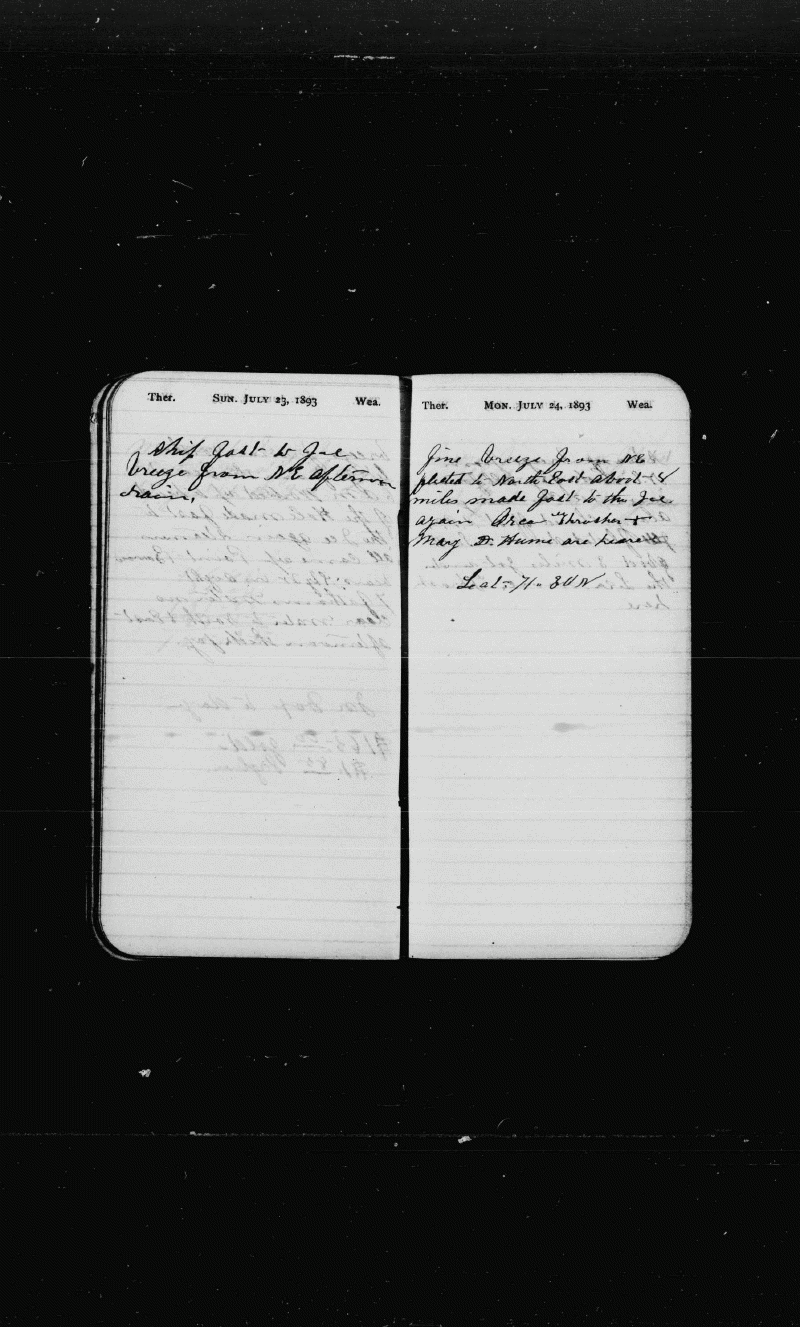 Ther. SUN. JULY 23, 1893 Wea.
Ship fast to Ice
breeze from NE afternoon
rain,
Ther. MON. JULY 24, 1893 Wea.
fine breeze from NE
to North East about 8
miles made fast to the Ice
again Orca Thrasher +
Mary D. Hume are here
Lat- 71-30 N